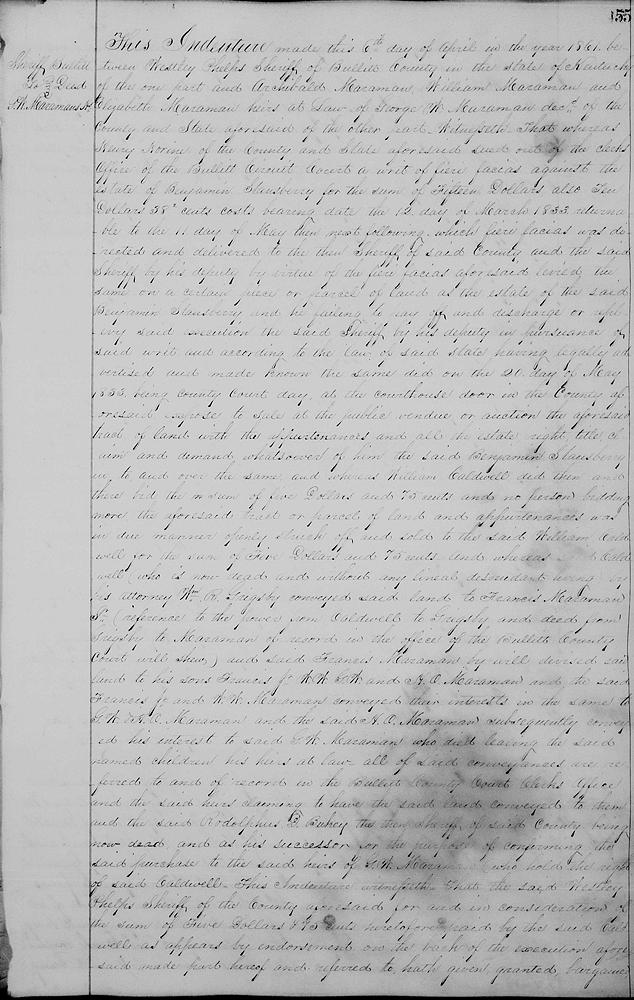 155
Sheriff Bullitt
To } Deed
G. W. Maraman's H.
This Indenture made this 6th day of April in the year 1861. be-
tween Westley Phelps Sheriff of Bullitt County in the state of Kentucky
of the one part and Archibald Maraman, William Maraman and
Elizabeth Maraman heirs at Law of George W. Maraman decd. of the
County and State aforesaid of the other part. Witnesseth. That whereas
Henry of the County and State aforesaid sued out of the clerks
Office of the Bullitt Circuit Court a writ of fiere facias against the
estate of Benjamin Stansberry for the sum of Fifteen Dollars also Ten
Dollars 38 cents costs bearing date the 12 day of March 1833 returna-
ble to the 11 day of May then next following, which fiere facias was di-
rected and delivered to the then Sheriff of said County and the said
Sheriff by his deputy by virtue of the fiere facias aforesaid levied the
same on a certain piece or parcel of land as the estate of the said
Benjamin Stansberry and he failing to pay off and discharge or
said execution the said Sheriff by his deputy in pursuance of
said writ and according to the law, of said state having legally ad
vertised and made known the same did on the 20 day of May
1833, being county Court day, at the courthouse door in the County af-
oresaid expose to sale at the public vendue or auction the aforesaid
tract of land with the appurtenances and all the estate right, title, cl-
aim and demand whatsoever of him the said Benjamin Stansberry
in, to and over the same, and whereas William Caldwell did then and
there bid the sum of five Dollars and 75 cents and no person bidding
more the aforesaid tract or parcel of land and appurtenances was
in due manner openly struck off and sold to the said William Cald
well for the sum of Five Dollars and 75 cents. And whereas Cald
well (who is now dead and without any lineal descendant living) by
his attorney Wm. R. Grigsby conveyed said land to Francis Maraman
Sr. (reference to the power from Caldwell to Grigsby and deed from
Grigsby to Maraman of record in the office of the Bullitt County
Court will shew,) and said Francis Maraman by will devised said
land to his sons Francis Jr. W. W. G. W. and A. O. Maraman and the said
Francis Jr. and W. W. Maraman conveyed their interests in the same to
G. W. & A. O. Maraman and the said A. O. Maraman subsequently convey
ed his interest to said G. W. Maraman who died leaving the said
named children his heirs at law all of said conveyances are re-
ferred to and of record in the Bullitt County Court Clerks Office
and the said heirs claiming to have the said land conveyed to them
and the said Rodolphus Bukey the then Sheriff of said County being
now dead, and as his successor for the purpose of confirming the
said purchase to the said heirs of G. W. Maraman, who hold the right
of said Caldwell. This Indenture witnesseth. That the said Westley
Phelps Sheriff of the County aforesaid for and in consideration of
the sum of Five Dollars & 75 cents heretofore paid by the said Cald
well as appears by indorsement on the back of the execution afore
said made part hereof and referred to, hath given, granted, bargained